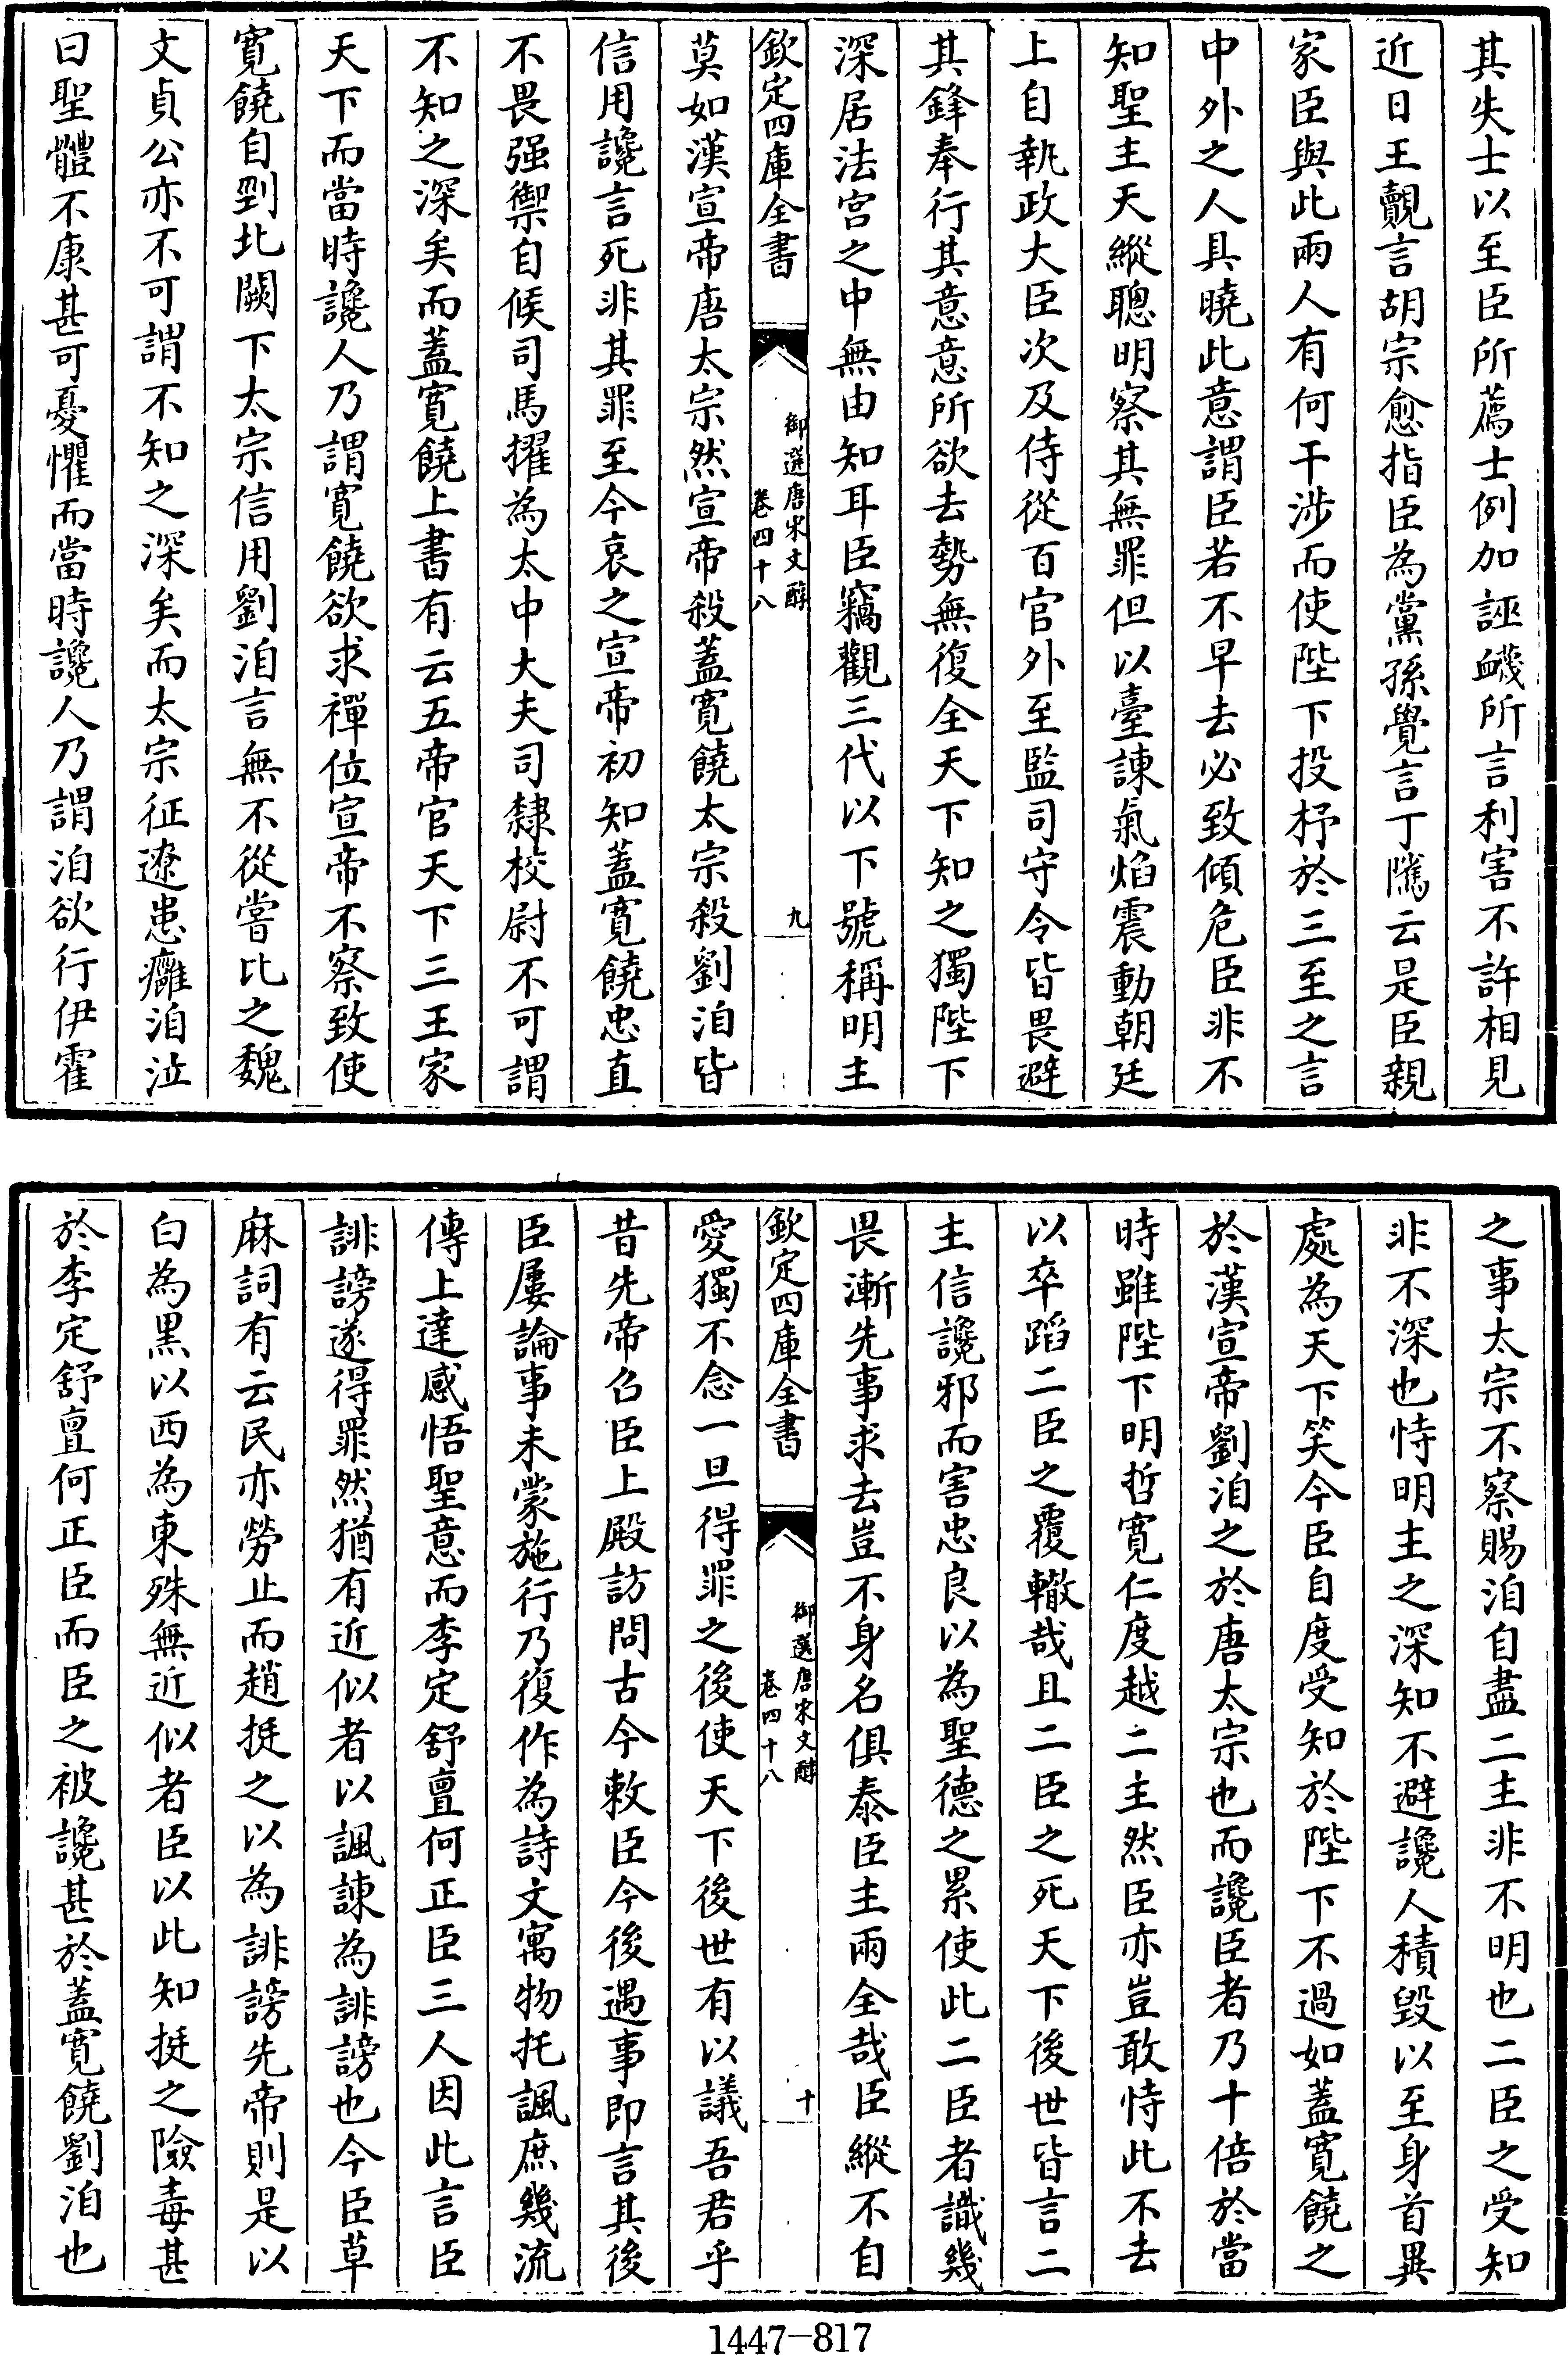 其失士以至臣所薦士例加誣衊所言利害不許相見
近日王覿言胡宗愈指臣為黨孫覺言丁隲云是臣親
家臣與此兩人有何干涉而使陛下投杼於三至之言
中外之人具曉此意謂臣若不早去必致傾危臣非不
知聖主天縱聰明察其無罪但以臺諫氣焰震動朝廷
上自執政大臣次及侍從百官外至監司守令皆畏避
其鋒奉行其意意所欲去勢無復全天下知之獨陛下
深居法宮之中無由知耳臣竊觀三代以下號稱明主
欽定四庫全書
御選唐宋文醇
卷四十八
九
莫如漢宣帝唐太宗然宣帝殺蓋寛饒太宗殺劉洎皆
信用讒言死非其罪至今哀之宣帝初知蓋寛饒忠直
不畏强禦自候司馬擢為太中大夫司隸校尉不可謂
不知之深矣而蓋寛饒上書有云五帝官天下三王家
天下而當時讒人乃謂寛饒欲求禪位宣帝不察致使
寛饒自剄北闕下太宗信用劉洎言無不從嘗比之魏
文貞公亦不可謂不知之深矣而太宗征遼患癰洎泣
曰聖體不康甚可憂懼而當時讒人乃謂洎欲行伊霍
之事太宗不察賜洎自盡二主非不明也二臣之受知
非不深也恃明主之深知不避讒人積毀以至身首異
處為天下笑今臣自度受知於陛下不過如蓋寛饒之
於漢宣帝劉洎之於唐太宗也而讒臣者乃十倍於當
時雖陛下明哲寛仁度越二主然臣亦豈敢恃此不去
以卒蹈二臣之覆轍哉且二臣之死天下後世皆言二
主信讒邪而害忠良以為聖德之累使此二臣者識幾
畏漸先事求去豈不身名俱泰臣主兩全哉臣縱不自
欽定四庫全書
御選唐宋文醇
卷四十八
十
愛獨不念一旦得罪之後使天下後世有以議吾君乎
昔先帝召臣上殿訪問古今敕臣今後遇事即言其後
臣屢論事未蒙施行乃復作為詩文寓物托諷庶幾流
傳上達感悟聖意而李定舒亶何正臣三人因此言臣
誹謗遂得罪然猶有近似者以諷諫為誹謗也今臣草
麻詞有云民亦勞止而趙挺之以為誹謗先帝則是以
白為黒以西為東殊無近似者臣以此知挺之險毒甚
於李定舒亶何正臣而臣之被讒甚於蓋寛饒劉洎也
1447-817